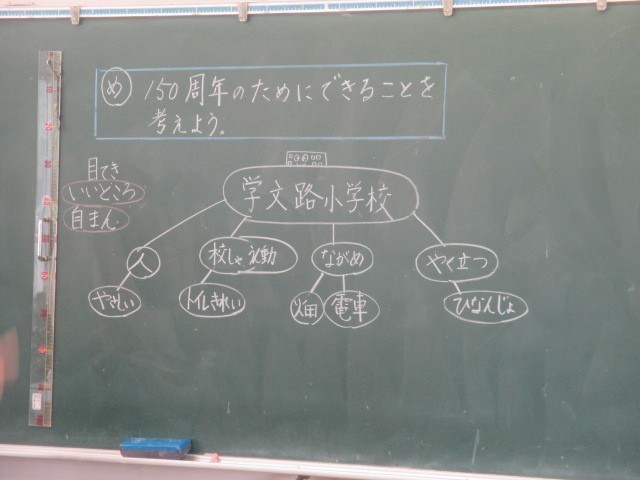 め 150周年のためにできることを
考えよう。
目てき
いいところ
自まん
学文路小学校
人
やさしい
トイレきれい
ながめ
畑
電車
やく立つ
ひなんじょ